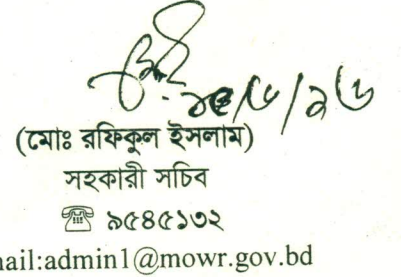 (মোঃ রফিকুল ইসলাম)
সহকারী সচিব
☎ ৯৫৪৫১৩২
nail:admin1@mowr.gov.bd